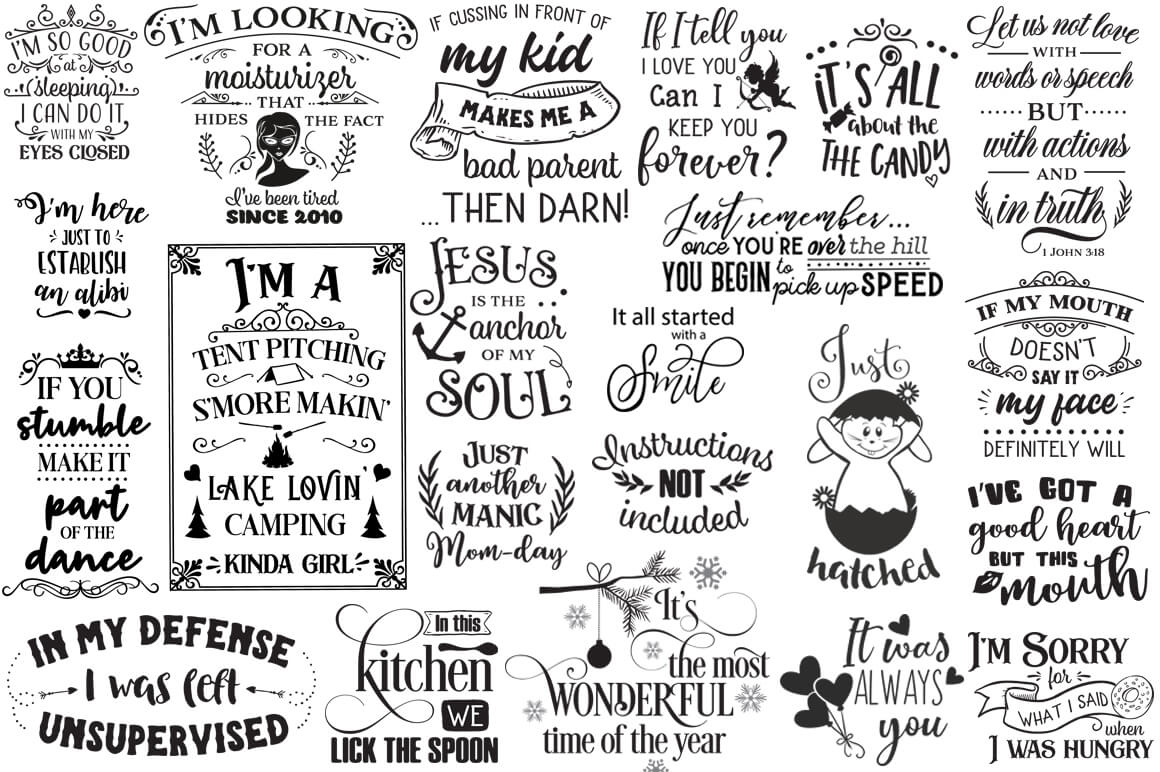 I'M SO GOOD
at
(sleeping)
I CAN DO IT
WITH MY
EYES CLOSED
I'M LOOKING
FOR A
moisturizer
THAT
HIDES THE FACT
I've been tired
SINCE 2010
IF CUSSING IN FRONT OF
my kid
MAKES ME A
bad parent
...THEN DARN!
If I tell you
I LOVE YOU
Can I
KEEP YOU
forever?
iT'S ALL
about the
THE CANDY
Let us not love
WITH
words or speech
BUT
with actions
AND
in truth
1 JOHN 3:18
I'm here
JUST TO
ESTABLISH
an alibi
I'M A
TENT PITCHING
S'MORE MAKIN'
LAKE LOVIN'
CAMPING
KINDA GIRL
JESUS
IS THE
anchor
OF MY
SOUL
Just remember...
once YOU'RE over the hill
YOU BEGIN to pick up SPEED
It all started
with a
Smile
Just
hatched
IF MY MOUTH
DOESN'T
SAY IT
my face
DEFINITELY WILL
IF YOU
stumble
MAKE IT
part
OF THE
dance
JUST
another
MANIC
Mom-day
Instructions
NOT
included
I'VE GOT A
good heart
BUT THIS
mouth
IN MY DEFENSE
I was left
UNSUPERVISED
In this
kitchen
WE
LICK THE SPOON
It's
the most
WONDERFUL
time of the year
It was
ALWAYS
you
I'M SORRY
for
WHAT I SAID
when
I WAS HUNGRY